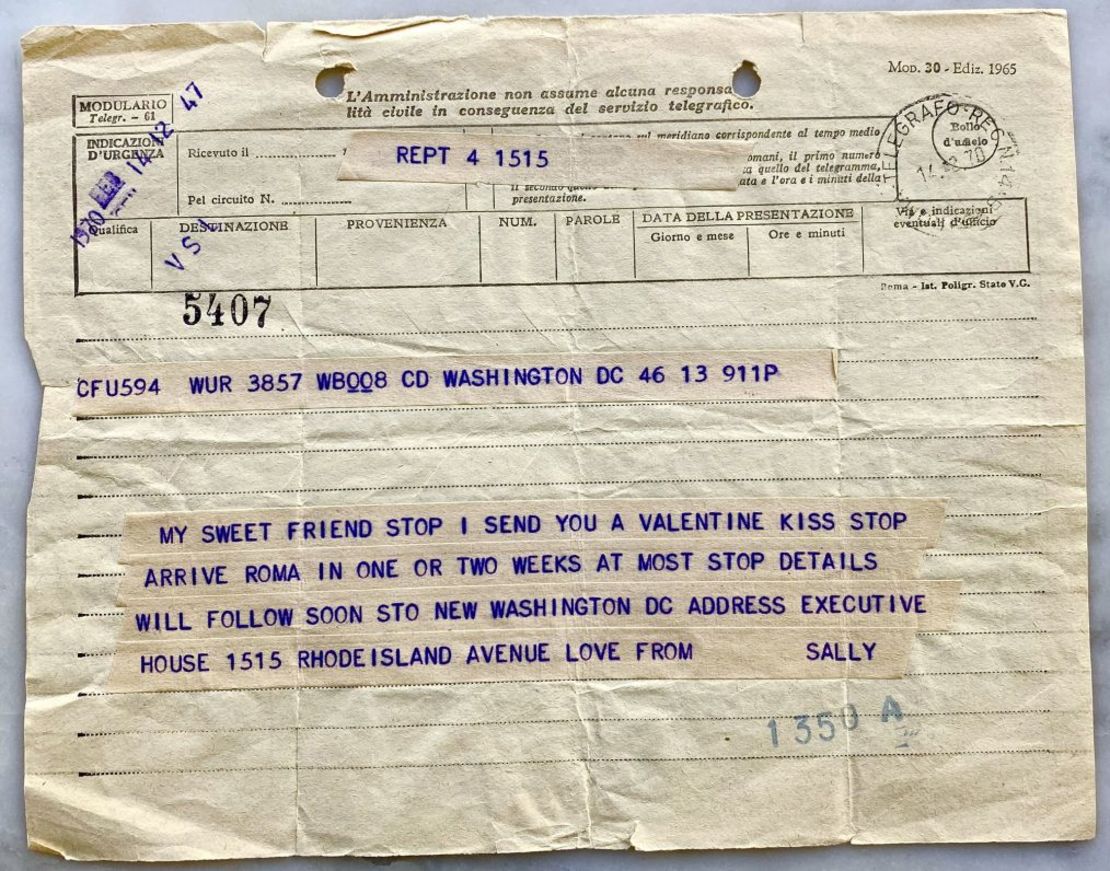 Mod. 30 - Ediz. 1965
MODULARIO
Telegr. - 61
L'Amministrazione non assume alcuna responsa
lità civile in conseguenza del servizio telegrafico.
1970 FEB 14 12 47
INDICAZIONI
D'URGENZA
Ricevuto il
Pel circuito N.
REPT 4 1515
sul meridiano corrispondente al tempo medio
omani, il primo numero
quello del telegramma,
ata e l'ora e i minuti della
il secondo
presentazione.
TELEGRAFO-REG.N.14
Bollo
d'ufficio
Qualifica
DESTINAZIONE
PROVENIENZA
NUM.
PAROLE
DATA DELLA PRESENTAZIONE
Giorno e mese
Ore e minuti
Via e indicazioni
eventuali d'ufficio
Roma - Ist. Poligr. Stato V.C.
5407
CFU594 WUR 3857 WB008 CD WASHINGTON DC 46 13 911P
MY SWEET FRIEND STOP I SEND YOU A VALENTINE KISS STOP
ARRIVE ROMA IN ONE OR TWO WEEKS AT MOST STOP DETAILS
WILL FOLLOW SOON STO NEW WASHINGTON DC ADDRESS EXECUTIVE
HOUSE 1515 RHODEISLAND AVENUE LOVE FROM SALLY
1350 A